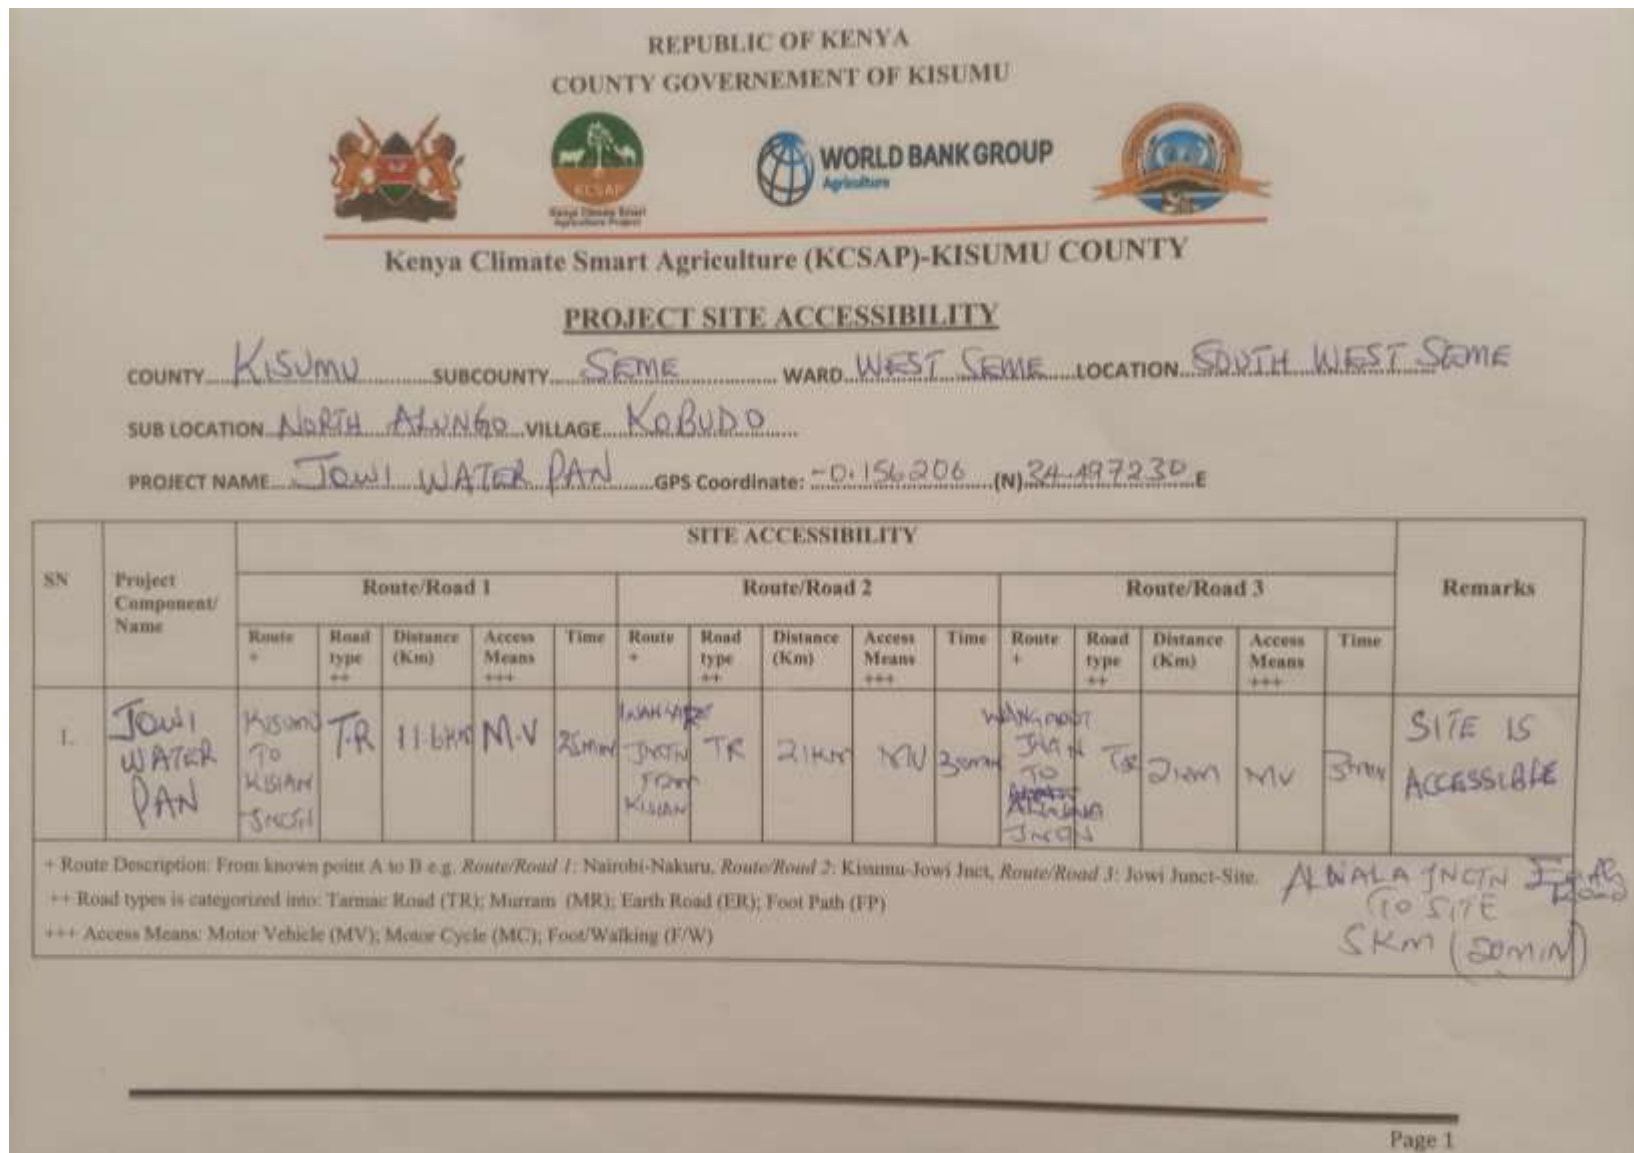 REPUBLIC OF KENYA
COUNTY GOVERNEMENT OF KISUMU
KCSAP
Kenya Climate Smart
Agriculture Project
WORLD BANK GROUP
Agriculture
Kenya Climate Smart Agriculture (KCSAP)-KISUMU COUNTY
PROJECT SITE ACCESSIBILITY
COUNTY KISUMU SUBCOUNTY SEME WARD WEST SEME LOCATION SOUTH WEST SEME
SUB LOCATION NORTH ALUNGO VILLAGE KOBUDO
PROJECT NAME JOWI WATER PAN GPS Coordinate: -0.156206 (N) 34.497230 E
SITE ACCESSIBILITY
SN Project Component/ Name Route/Road 1 Route/Road 2 Route/Road 3 Remarks
Route + Road type ++ Distance (Km) Access Means +++ Time Route + Road type ++ Distance (Km) Access Means +++ Time Route + Road type ++ Distance (Km) Access Means +++ Time
1.
JOWI
WATER
PAN
KISUMU
TO
KISIAN
T.R
11.6KM
M.V
25min
JNCTN
FROM
KISIAN
TR
21KM
MV
30min
TO
JNCTN
TR
2KM
MV
3min
SITE IS
ACCESSIBLE
+ Route Description: From known point A to B e.g. Route/Road 1: Nairobi-Nakuru, Route/Road 2: Kisumu-Jowi Jnct, Route/Road 3: Jowi Junct-Site.
++ Road types is categorized into: Tarmac Road (TR); Murram (MR); Earth Road (ER); Foot Path (FP)
+++ Access Means: Motor Vehicle (MV); Motor Cycle (MC); Foot/Walking (F/W)
ALWALA JNCTN
TO SITE
5Km (20MIN)
Page 1